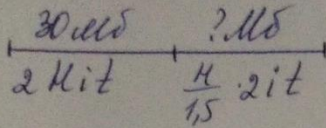 30 Мб ? Мб
2 H i t H/1,5 · 2 i t